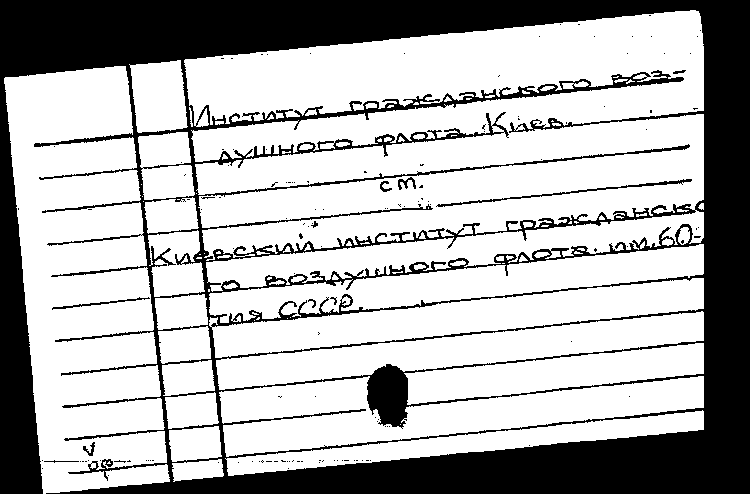 Институт гражданского воз-
душного флота. Киев.
ст.
Киевский институт гражданско
го воздушного флота им. 60-
тия СССР.
V
оф